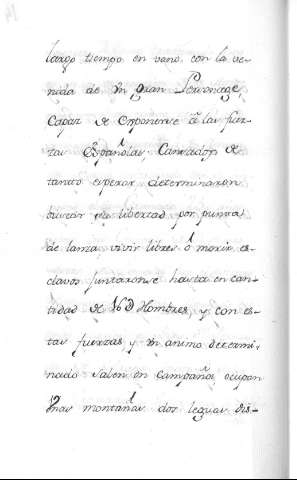 largo tiempo en vano, con la ve-
nida de Vn gran Personage,
Capaz de Exponerse â las fuer-
zas Españolas, Cansados de
tanto esperar determinaron
buscar su libertad por punta
de lanza, vivir libres ô morir es-
clavos juntaronse hasta en can-
tidad de 16 D Hombres, y con es-
tas fuerzas y Vn animo determi-
nado salen en Campaña, ocupan
Vnas montañas dos leguas dis-